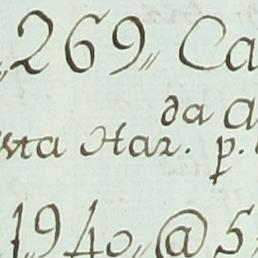 „269„ Ca
da a
sta Har. p.
„1940„ @ 5